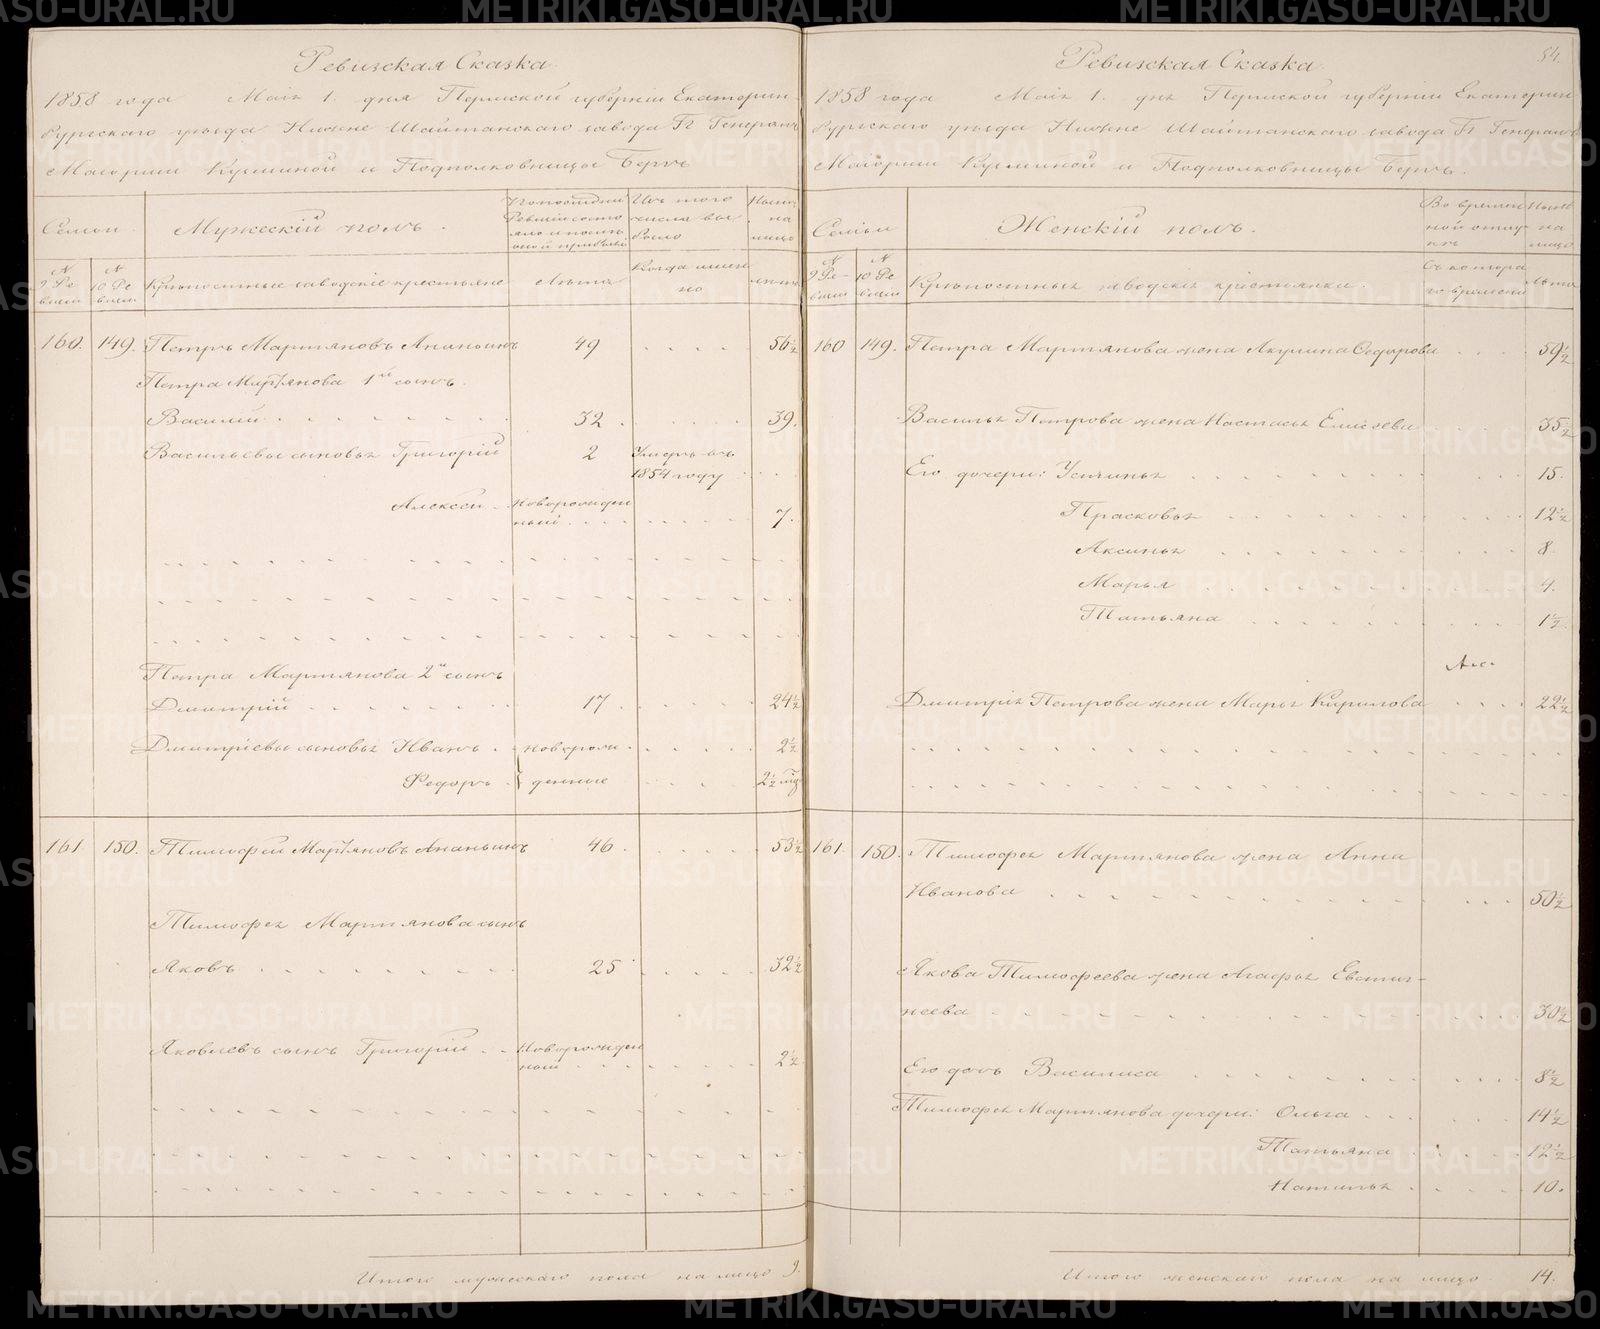 Ревизская Сказка.
1858 года Маія 1. дня Пермской губерніи Екатерин-
бургскаго уѣзда Нижне Шайтанскаго завода Гг Генералъ
Маіорши Кузминой и Подполковницы Бергъ
Семьи. Мужескій полъ. По послѣдней Ревизіи состояло и послѣ оной прибыло Изъ того числа выбыло Нынѣ на лицо
№ 9 Ревизіи № 10 Ревизіи Крѣпостные заводскіе крестьяне Лѣта Когда именно лѣта
160. 149. Петръ Мартьяновъ Ананьинъ 49 56½
Петра Мартьянова 1й сынъ.
Василій 32. 39.
Васильевы сыновья Григорій 2 Умеръ въ
1854 году
Алексѣй Новорожден
ный 7.
Петра Мартьянова 2й сынъ
Дмитрій 17. 24½
Дмитріевы сыновья Иванъ новорож 2½
Федоръ денные 2½
161 150. Тимофей Мартьяновъ Ананьинъ 46. 53½
Тимофея Мартьянова сынъ
Яковъ 25 32½
Яковлевъ сынъ Григорій Новорожден
ный 2½
Итого мужескаго пола на лицо 9.
54.
Ревизская Сказка
1858 года Маія 1. дня Пермской губерніи Екатерин
бургскаго уѣзда Нижне Шайтанскаго завода Гг Генералъ
Маіорши Кузминой и Подполковницы Бергъ.
Семьи Женскій полъ. Во временной отлучкѣ Нынѣ на лицо
№ 9 Ревизіи № 10 Ревизіи Крѣпостныя заводскія крестьянки. Съ котораго времени Лѣта
160 149. Петра Мартьянова жена Акулина Федорова 59½
Василья Петрова жена Настасья Елисѣева 35½
Его дочери: Устинья 15.
Прасковья 12½
Аксинья 8.
Марья 4.
Татьяна 1½
Дмитрія Петрова жена Марья Кирилова 22½
161. 150. Тимофея Мартьянова жена Анна
Иванова 50½
Якова Тимофеева жена Агафья Евстиг-
неева 30½
Его дочь Василиса 8½
Тимофея Мартьянова дочери: Ольга 14½
Татьяна 12½
Наталья 10.
Итого женскаго пола на лицо 14.
METRIKI.GASO-URAL.RU